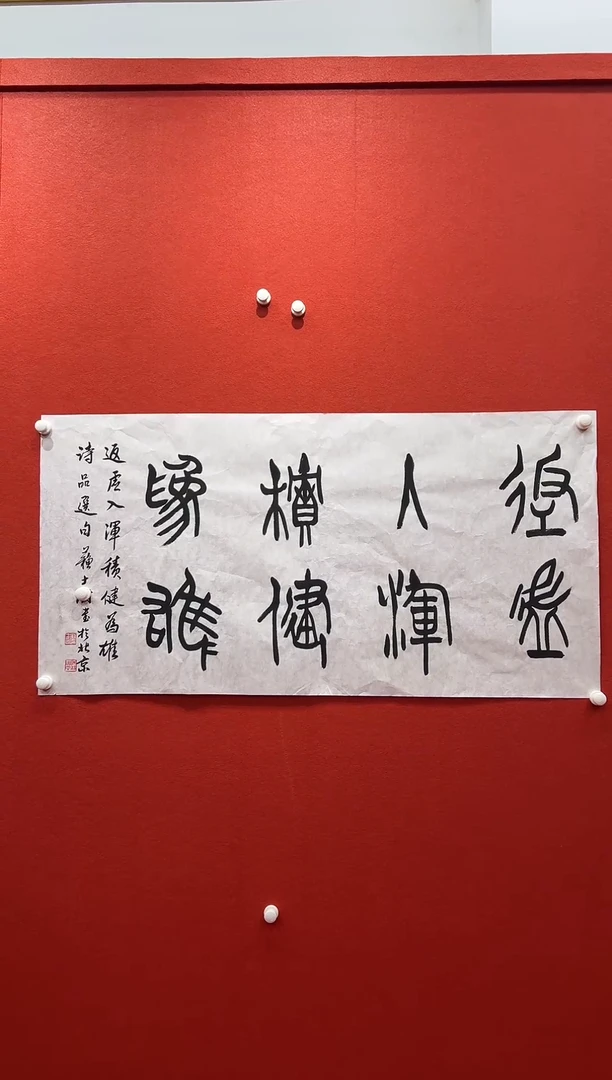 返虛
入渾
積健
為雄
返虛入渾積健為雄
诗品選句蘇士書於北京